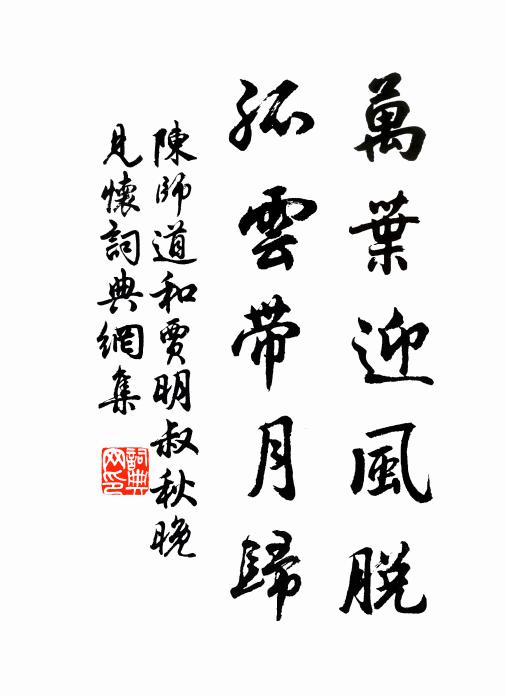 萬葉迎風脫
孤雲帶月歸
陳師道和賈明叔秋晚
見懷詞典網集
詞典
网印